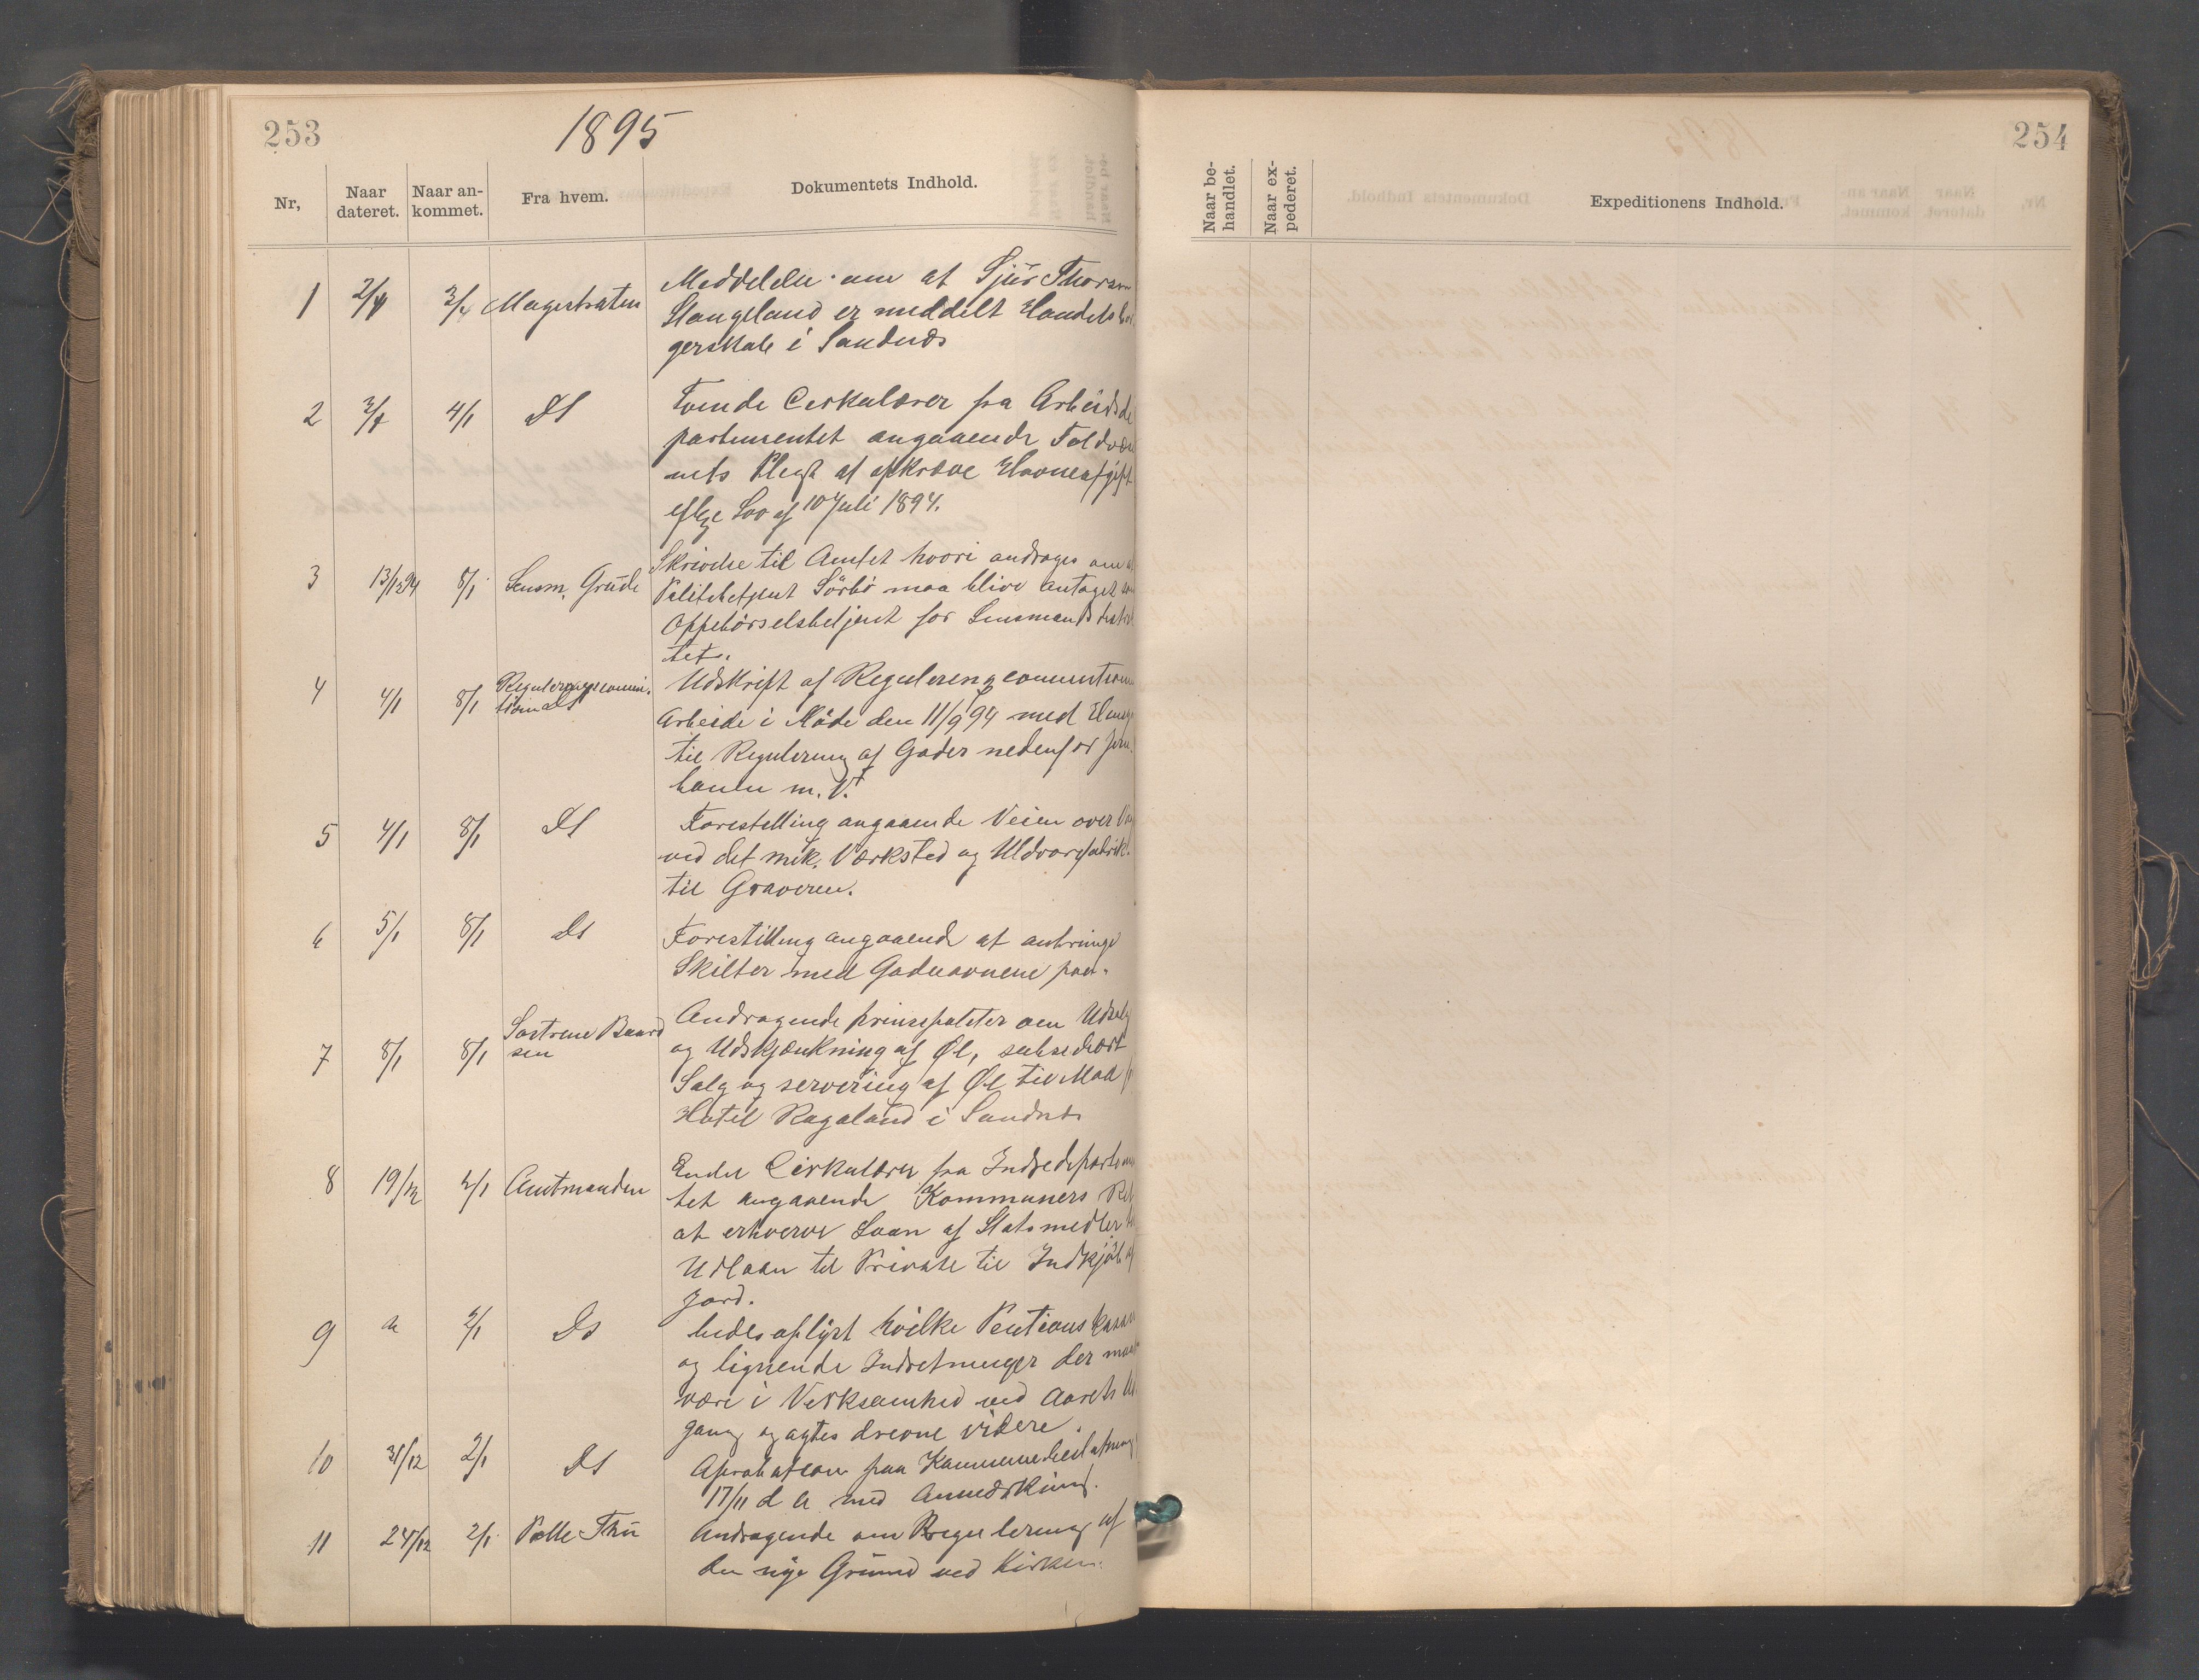 253
1895
Nr,
Naar dateret.
Naar ankommet.
Fra hvem.
Dokumentets Indhold.
1 2/1 3/1 Magistraten Meddelelse om at Sjur Thorsen
Stangeland er meddelt Handelsbor
gerskab i Sandnæs
2 3/1 4/1 Ds Tvende Cirkulærer fra Arbeidsde
partementet angaaende Toldvæs
nets Pligt at opkræve Havneafgift
efter Lov af 10 Juli 1894.
3 13/12 94 8/1 Lensm. Grude Skrivelse til Amtet hvori andrages om at
Politibetjent Sörbö maa blive antaget som
Oppebörselsbetjent for Lensmandsdistrik
tet.
4 4/1 8/1 Reguleringscommi.
Udskrift af Reguleringscommissionens
Arbeide i Möde den 11/9 94 med
til Regulering af Gader nedenfor Jern
banen m. V.
5 4/1 8/1 Ds Forestilling angaaende Veien over
ved det mek. Værksted og Uldvarefabrik.
til Graveren.
6 5/1 8/1 Ds Forestilling angaaende at anbringe
Skilter med Gadenavnene paa.
7 8/1 8/1 Söstrene Baard
sen
Andragende prinsipaliter om Udsalg
og Udskjænkning af Øl, subsidiært
Salg og servering af Øl til Mad
Hotel Rogaland i Sandnes
8 19/12 2/1 Amtmanden Endel Cirkulærer fra Indredepartemen
tet angaaende Kommuners Ret
at erhverve Laan af Statsmedler til
Udlaan til Private til Indkjöb af
Jord.
9 2/1 Ds bedes oplyst hvilke Pentionskasser
og lignende Indretninger der maatte
være i Virksomhed ved Aarets Ud
gang og agtes drevne videre.
10 31/12 2/1 Ds Aprobation paa Kommunebeslutning
17/11 d A med Anmærkning.
11 24/12 2/1 Palle Thu Andragende om Regulering af
den nye Grund ved Kirken.
254
Naar behandlet.
Naar expederet.
Expeditionens Indhold.